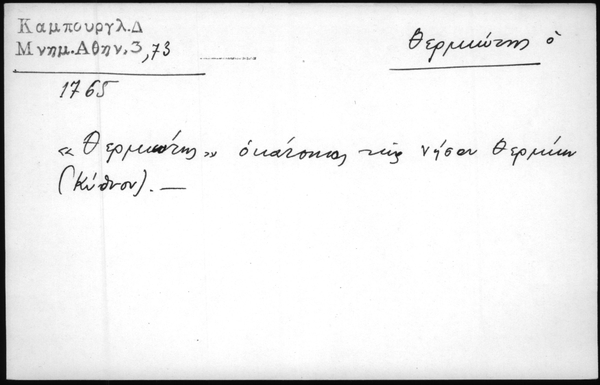 Καμπουργλ.Δ
Μνημ.Αθην,3,73
Θερμιώτης ὁ
1765
« Θερμιώτης » ὁ κάτοικος τῆς νήσου Θερμίων
(Κύθνου). —